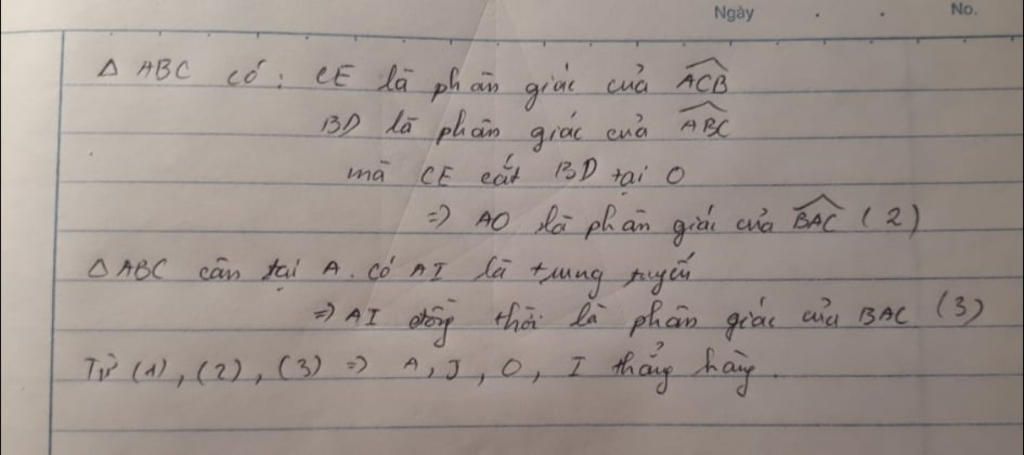 Ngày . . No.
Δ ABC có: CE là phân giác của \widehat{ACB}
BD là phân giác của \widehat{ABC}
mà CE cắt BD tại O
=> AO là phân giác của \widehat{BAC} (2)
Δ ABC cân tại A. có AI là trung tuyến
=> AI đồng thời là phân giác của BAC (3)
Từ (1), (2), (3) => A, J, O, I thẳng hàng.